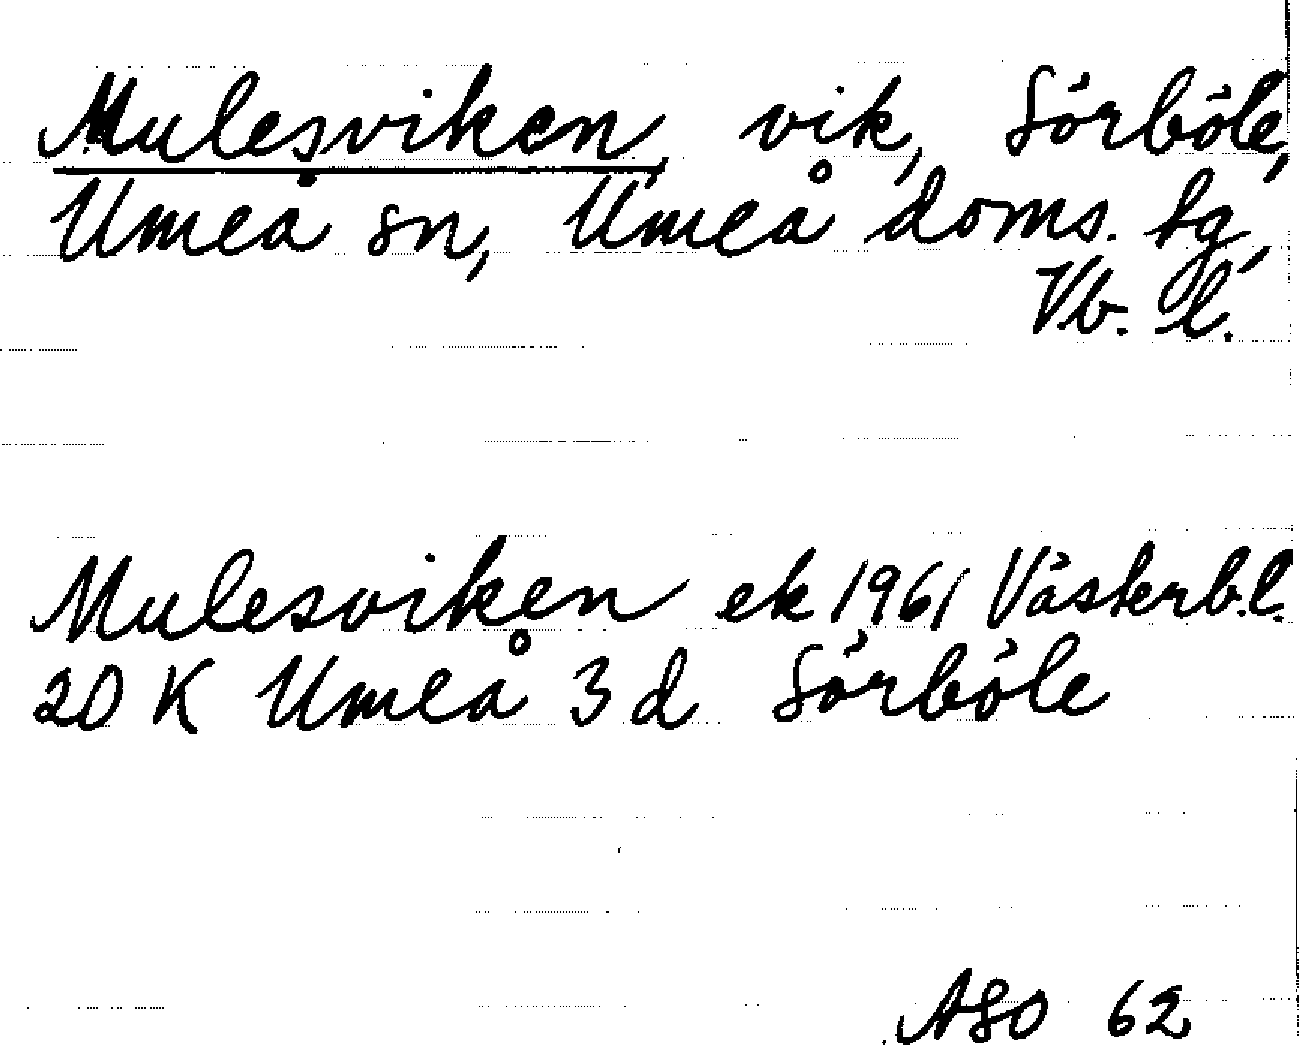 Mulesviken, vik, Sörböle,
Umeå sn, Umeå doms. tg,
Vb. l.
Mulesviken ek 1961 Västerb.l.
20 K Umeå 3 d Sörböle
ASO 62